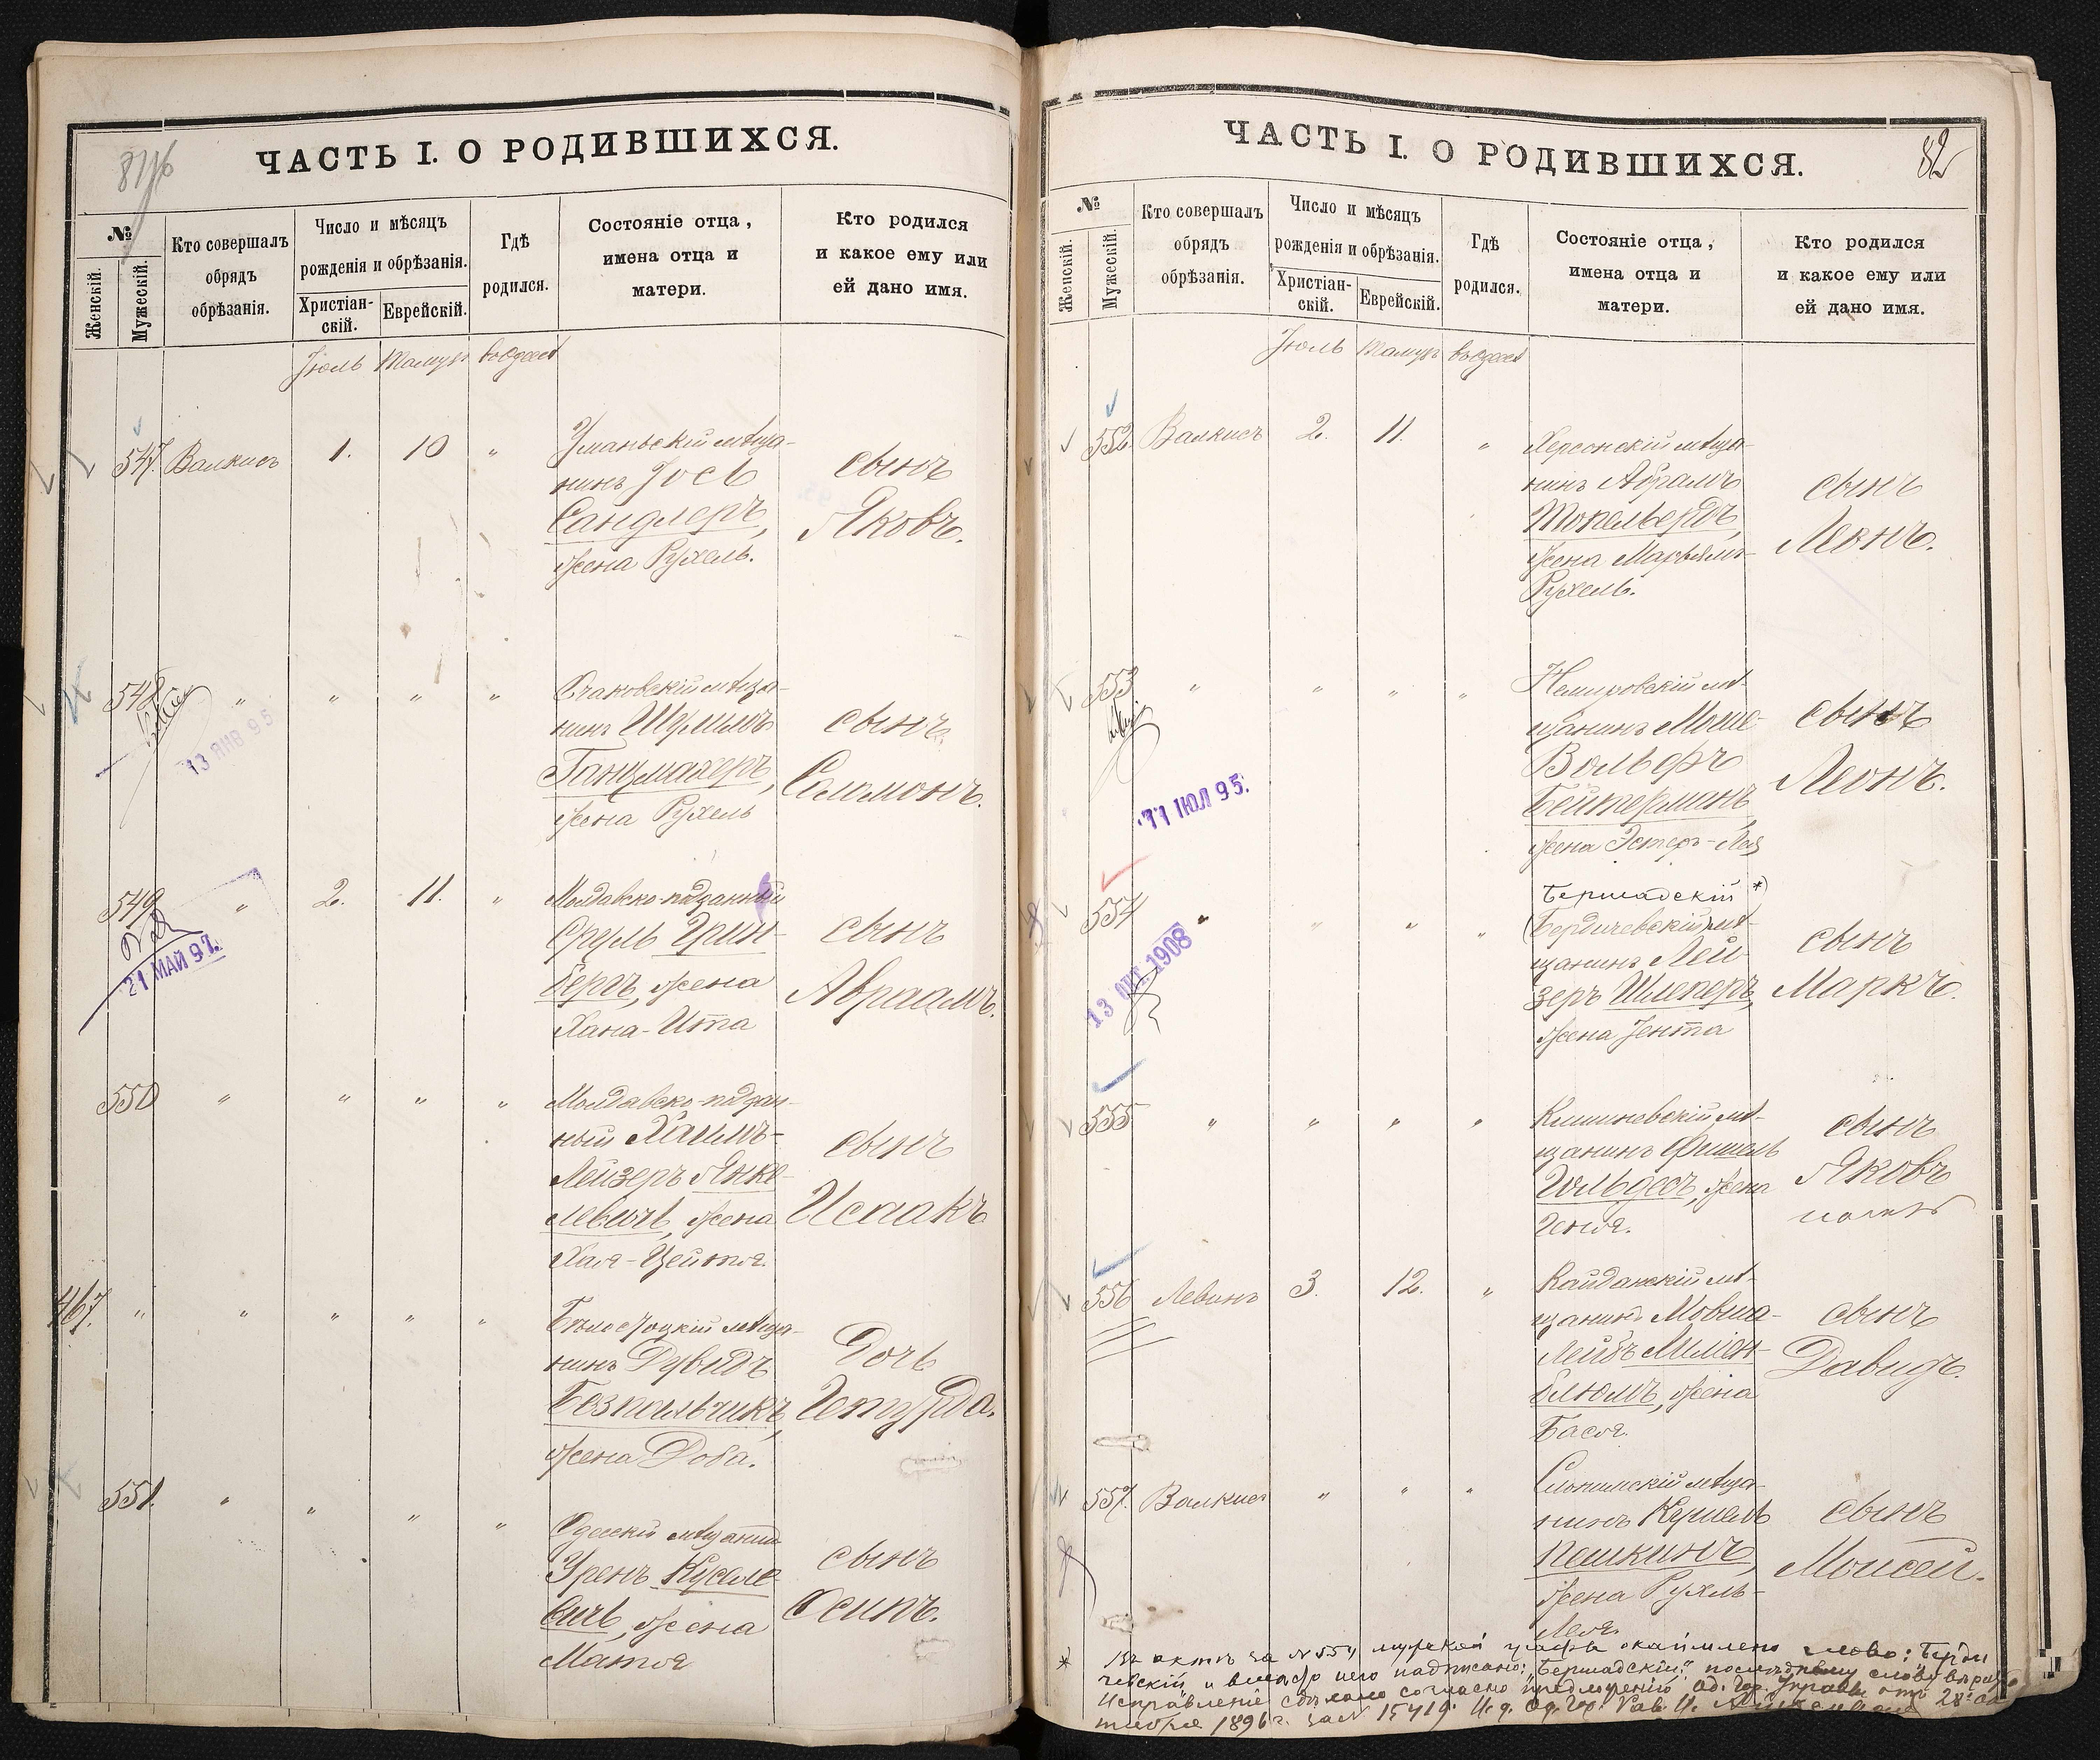 81
ЧАСТЬ I. О РОДИВШИХСЯ.
№
Женскій.
Мужескій.
Кто совершалъ
обрядъ
обрѣзанія.
Число и мѣсяцъ
рожденія и обрѣзанія.
Христіан-
скій.
Еврейскій.
Гдѣ
родился.
Состояніе отца,
имена отца и
матери.
Кто родился
и какое ему или
ей дано имя.
Іюль Тамузъ въ Одессѣ
547. Валкисъ 1. 10 "
Уманьскій мѣща-
нинъ Іось
Сандлеръ,
жена Рухель.
сынъ
Яковъ.
548 " " " "
13 ЯНВ 95
Очаковскій мѣща-
нинъ
Ганцмахеръ,
жена Рухель
сынъ
Соломонъ.
549 " 2. 11. "
21 МАЙ 97.
Молдавско-подданный
Сруль Грин-
бергъ, жена
Хана-Ита
сынъ
Авраамъ.
550 " " " "
Молдавско-поддан-
ный Хаимъ-
Лейзеръ Янке-
левичъ, жена
Хая-Цейтя.
сынъ
Исаакъ
467. " " " " "
нинъ Дувидъ
жена Доба.
Дочь
551. " " " "
Одесскій мѣщанинъ
жена
Матля
сынъ
Осипъ.
82
ЧАСТЬ I. О РОДИВШИХСЯ.
№
Женскій.
Мужескій.
Кто совершалъ
обрядъ
обрѣзанія.
Число и мѣсяцъ
рожденія и обрѣзанія.
Христіан-
скій.
Еврейскій.
Гдѣ
родился.
Состояніе отца,
имена отца и
матери.
Кто родился
и какое ему или
ей дано имя.
Іюль Тамузъ въ Одессѣ
552. Валкисъ 2. 11. "
Херсонскій мѣща-
нинъ Абрамъ
Топельбергъ,
жена Марьямъ-
Рухель.
сынъ
Леонъ.
553 " " " "
11 ІЮЛ 95.
Немировскій мѣ-
щанинъ Моше-
Вольфъ
Бейтерманъ,
жена Эстеръ-Лея
сынъ
Леонъ.
554 " " " "
13 ОКТ 1908
Бершадскій *)
(Бердичевскій) мѣ-
щанинъ Лей-
зеръ Шлеперъ,
жена Іента
сынъ
Маркъ.
555 " " " "
Кишиневскій мѣ-
щанинъ Фишель
Гольдесъ, жена
Геня.
сынъ
Яковъ
556 Левинъ 3. 12. "
Кайданскій мѣ-
щанинъ Мовша-
Лейбъ Милен-
блюмъ, жена
Бася.
сынъ
Давидъ.
557. Валкисъ " " "
Слонимскій мѣща-
нинъ Кушель
Пешкинъ,
жена Рухль-
Лея.
сынъ
Моисей.
* Въ актѣ за №554 мужской графы окаймлено слово: "Берди-
чевскій" и вмѣсто него надписано: "Бершадскій"; послѣднему слову вѣрить.
Исправленіе сдѣлано согласно предложенію Од. Гор. Управы отъ 28 ок-
тября 1896 г. за № 15419. И. д. Од. Гор. Рав.